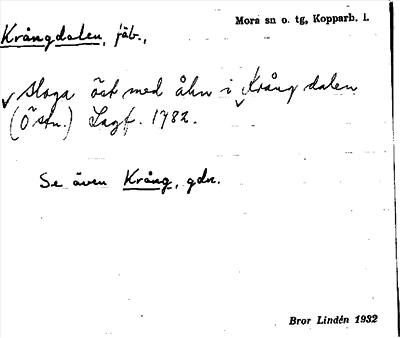 Krångdalen, fäb.,
Mora sn o. tg, Kopparb. l.
Sloga öst med åhn i Krång dalen
(Östn.) Lagf. 1782.
Se även Krång, gdn.
Bror Lindén 1932